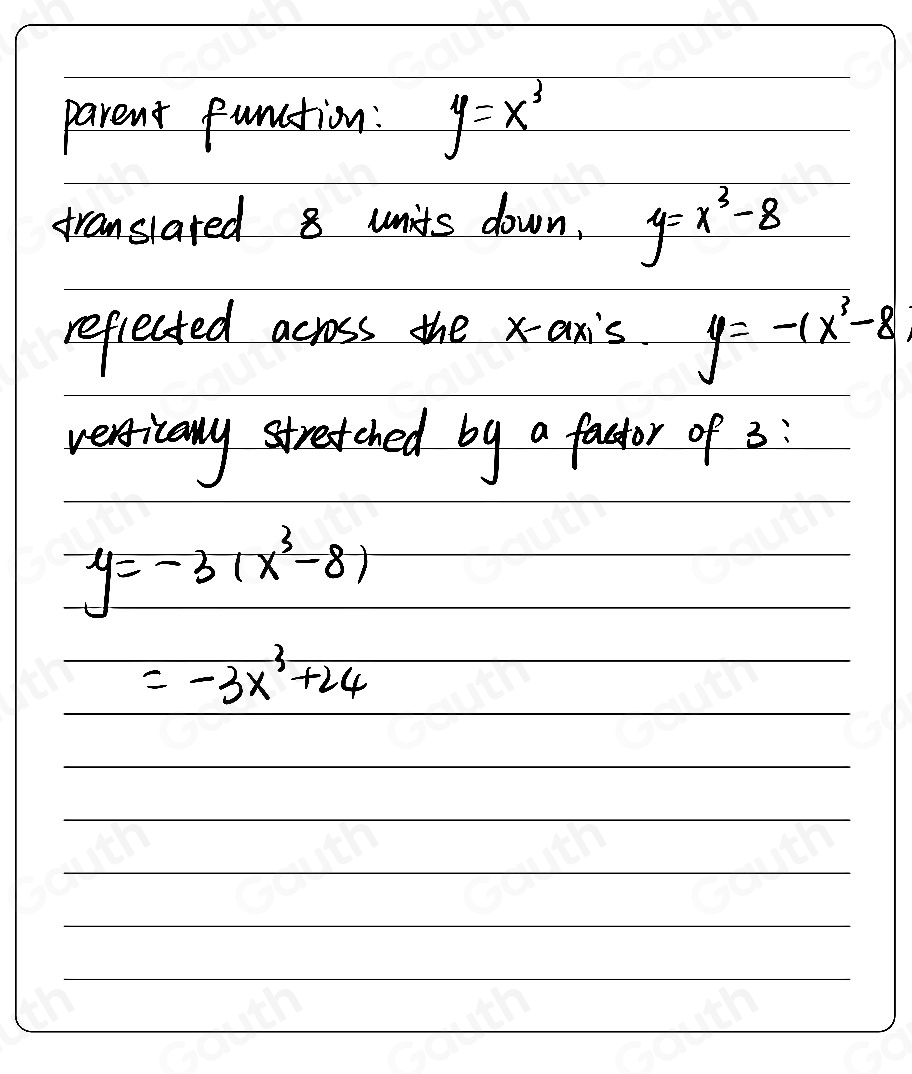 parent function: y = x³
translated 8 units down, y = x³ - 8
reflected across the x-axis. y = -(x³ - 8)
vertically stretched by a factor of 3:
y = -3(x³ - 8)
= -3x³ + 24